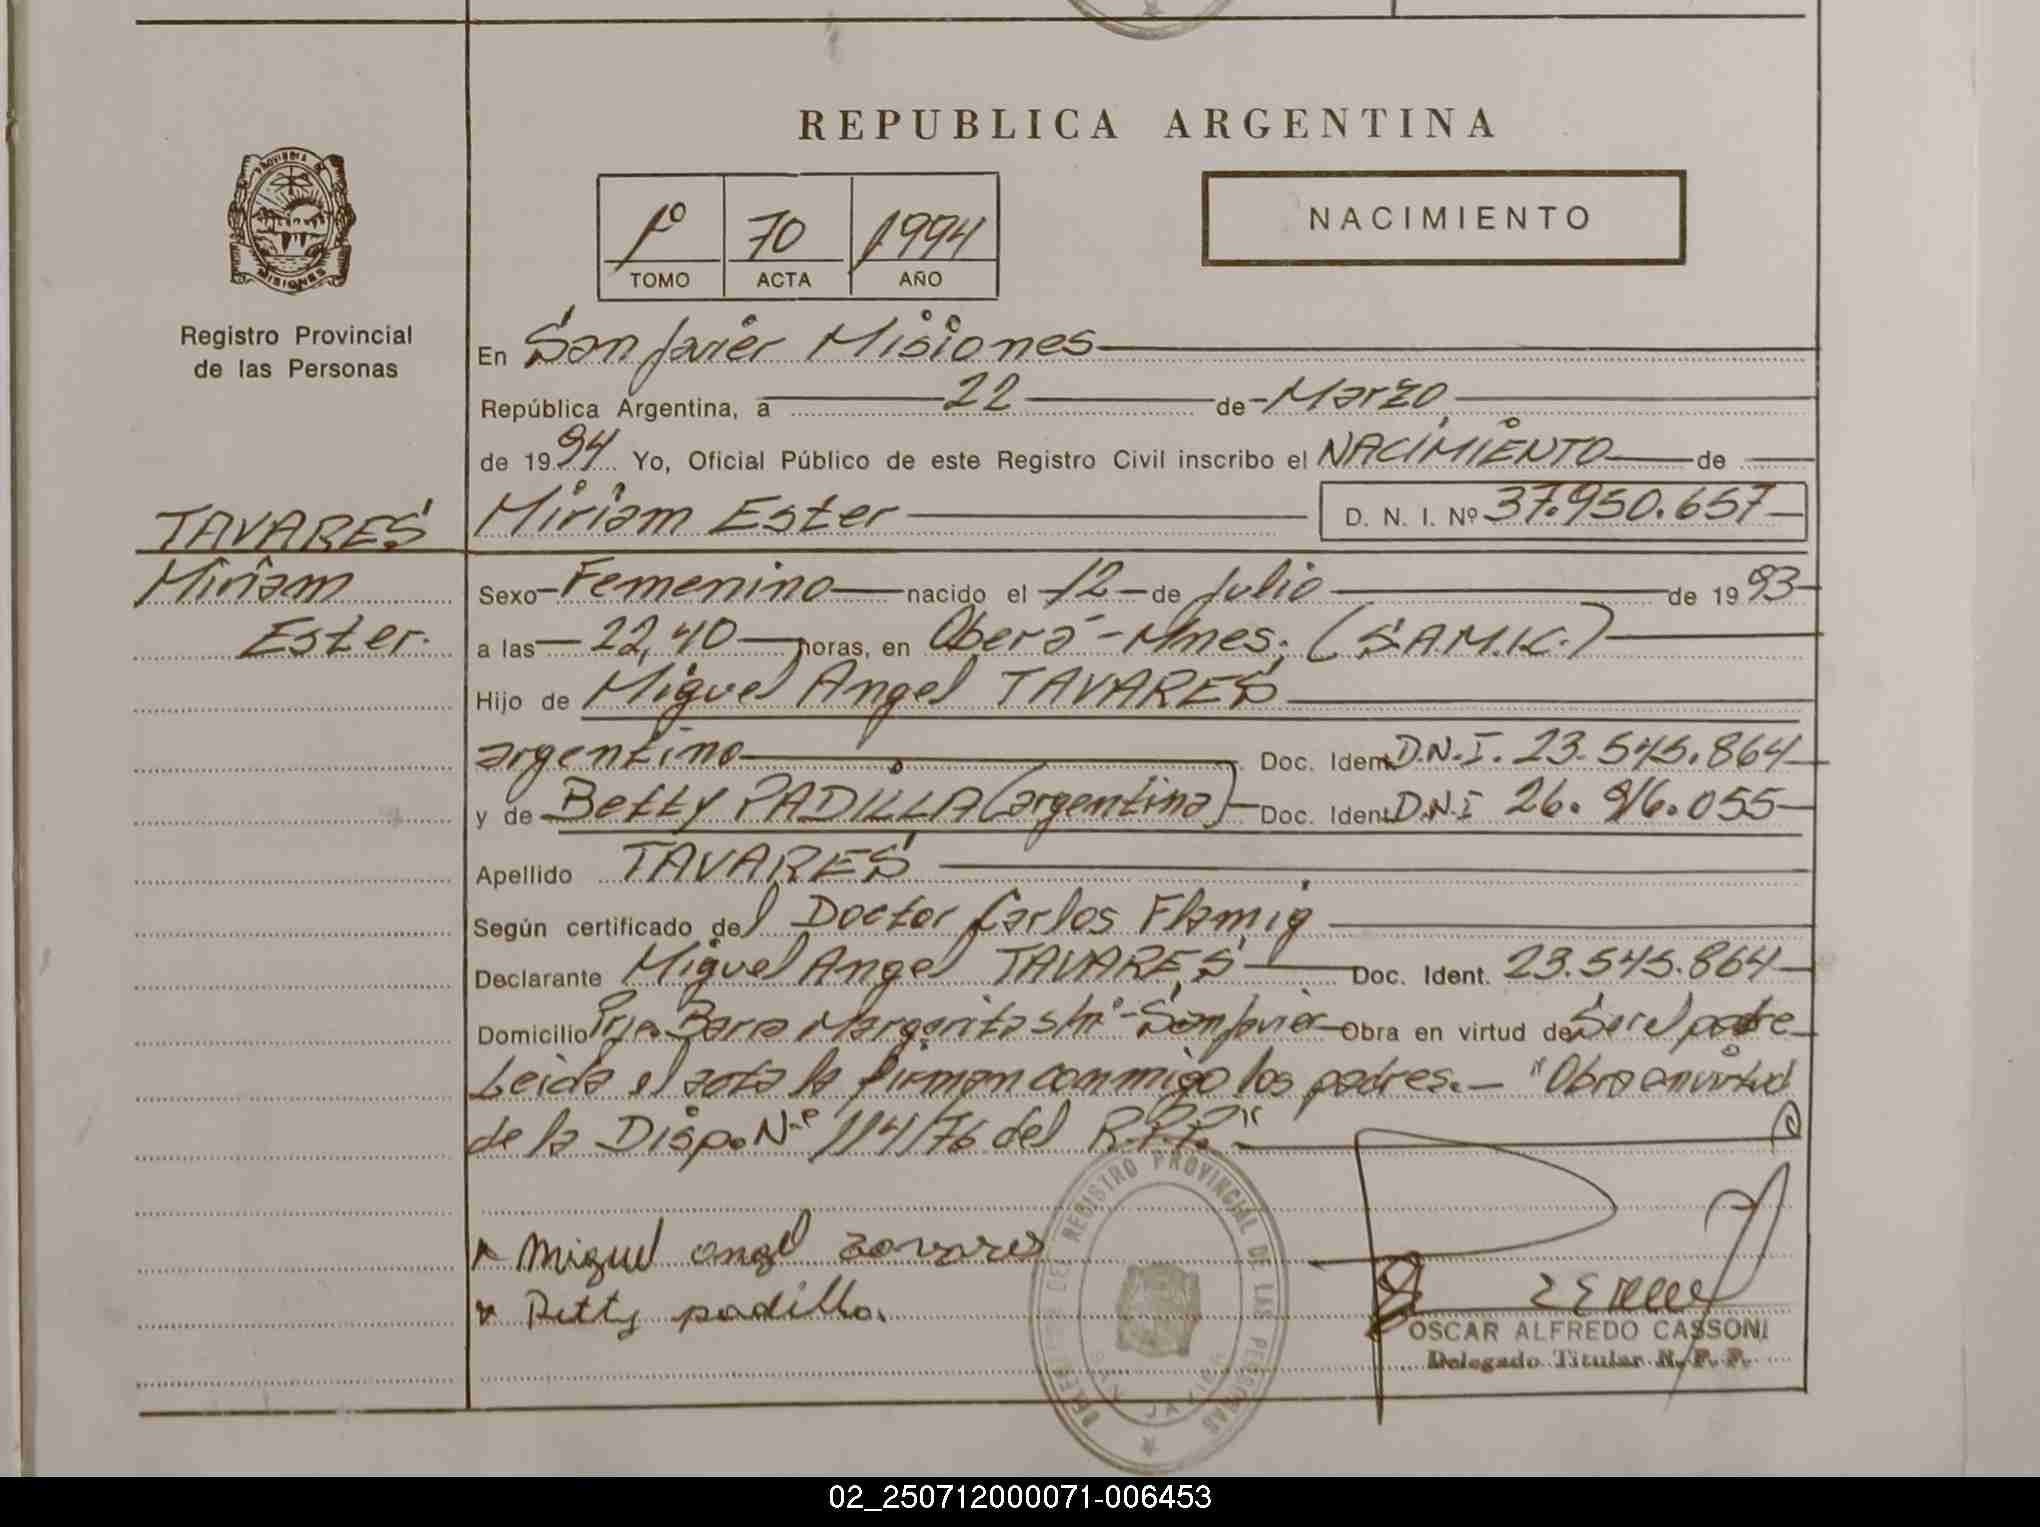 REPUBLICA ARGENTINA
1º 70 1994
TOMO ACTA AÑO
NACIMIENTO
PROVINCIA DE MISIONES
Registro Provincial
de las Personas
En San Javier Misiones
República Argentina, a 22 de Marzo
de 1994 Yo, Oficial Público de este Registro Civil inscribo el NACIMIENTO de
Miriam Ester D. N. I. Nº 37.950.657
TAVARES
Miriam
Ester.
Sexo Femenino nacido el 12 de Julio de 1993
a las 22,40 horas, en Oberá - Mnes. (S.A.M.I.C.)
Hijo de Miguel Angel TAVARES
argentino Doc. Ident. D.N.I. 23.545.864
y de Betty PADILLA (argentina) Doc. Ident. D.N.I 26.916.055
Apellido TAVARES
Según certificado del Doctor Carlos Flamig
Declarante Miguel Angel TAVARES Doc. Ident. 23.545.864
Domicilio Pje. Barra Margarita s/nº - San Javier Obra en virtud de Ser el padre
Leida el acta la firman conmigo los padres.- "Obra en virtud
de la Dispo. Nº 114/76 del R.P.P."
Miguel angel tavares
Betty padilla.
DELEGACION DEL REGISTRO PROVINCIAL DE LAS PERSONAS
SAN JAVIER
OSCAR ALFREDO CASSONI
Delegado Titular R. P. P.
02_250712000071-006453